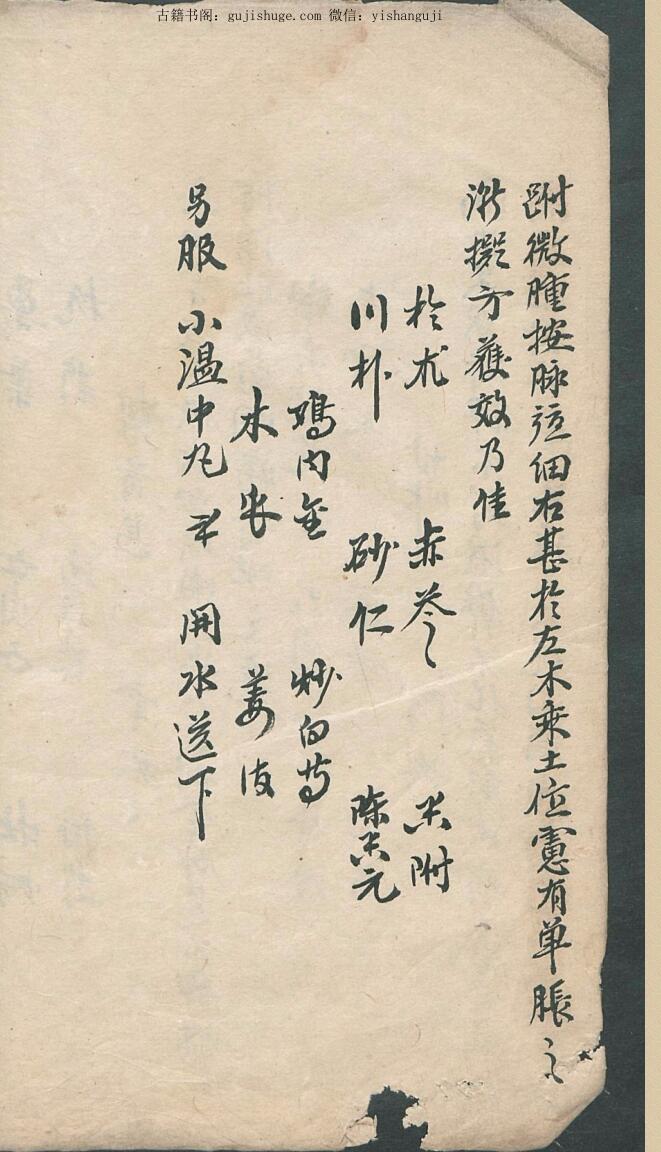 古籍书阁：gujishuge.com 微信：yishanguji
跗微腫按脉弦细右甚於左木乘土位慮有单脹之
漸擬方蔉效乃佳
於朮 赤苓 香附
川朴 砂仁 陈香元
鸡内金 炒白芍
木瓜 姜皮
另服 小温中丸 開水送下